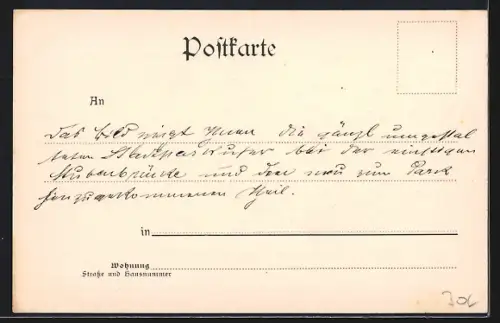 Postkarte
An
Das Bild zeigt Ihnen die gänzl umgestal
teten Stadtparkufer bei der einstigen
Stubenbrücke und den neu zum Park
hinzugekommenen Theil.
in
Wohnung
Straße und Hausnummer
30L